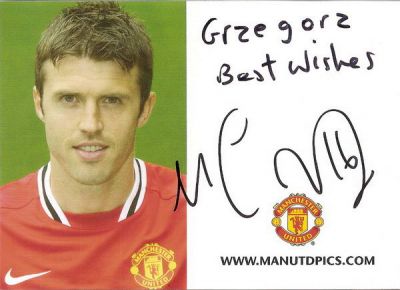 Grzegorz
Best Wishes
MC 16
MANCHESTER
UNITED
WWW.MANUTDPICS.COM
MANCHESTER
UNITED